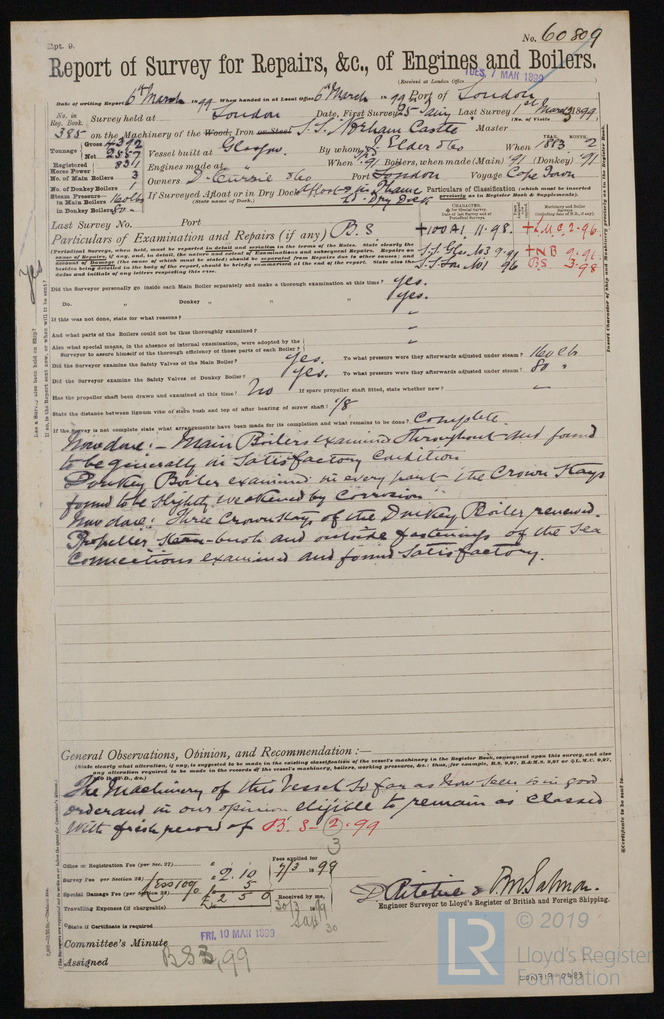 Rpt. 9.
No. 60809
Report of Survey for Repairs, &c., of Engines and Boilers.
(Received at London Office TUES. 7 MAR 1899
Date of writing Report 6th March 1899 When handed in at Local Office 6th March 1899 Port of London
No. in Reg. Book. Survey held at London Date, First Survey 25th Last Survey 1st March 1899
(No. of Visits 3)
385 on the Machinery of the Wood, Iron or Steel S.S. "Norham Castle" Master
Tonnage Gross 4392
Net 2857
Vessel built at Glasgow By whom J. Elder & Co When 1883 2
YEAR. MONTH.
Registered Horse Power
Engines made at " When '91 Boilers, when made (Main) '91 (Donkey) '91
No. of Main Boilers 3
Owners D. Currie & Co Port London Voyage Cape Town
No. of Donkey Boilers 1
Steam Pressure in Main Boilers 160 lbs
in Donkey Boilers 80 "
If Surveyed Afloat or in Dry Dock Afloat & in Thame Ld. Dry Dock
(State name of Dock.)
Particulars of Classification (which must be inserted precisely as in Register Book & Supplements).
Last Survey No. Port
CHARACTER.
Machinery and Boiler Surveys
Particulars of Examination and Repairs (if any) B.S
+100A1. 11.98. +L.M.C. 2.96.
S.S. Gls. No3 9.91 +NB 9.91
S.S. Lon. No1 96 BS 3.98
Did the Surveyor personally go inside each Main Boiler separately and make a thorough examination at this time? Yes.
Do. " Donkey " " Yes.
If this was not done, state for what reasons? "
And what parts of the Boilers could not be thus thoroughly examined? "
Also what special means, in the absence of internal examination, were adopted by the Surveyor to assure himself of the thorough efficiency of those parts of each Boiler? "
Did the Surveyor examine the Safety Valves of the Main Boiler? Yes. To what pressure were they afterwards adjusted under steam? 160 lbs
Did the Surveyor examine the Safety Valves of Donkey Boiler? Yes. To what pressure were they afterwards adjusted under steam? 80 "
Has the propeller shaft been drawn and examined at this time? No If spare propeller shaft fitted, state whether new? "
State the distance between lignum vitæ of stern bush and top of after bearing of screw shaft? 1/8
If the Survey is not complete state what arrangements have been made for its completion and what remains to be done? Complete.
Now done:- Main Boilers examined throughout and found
to be generally in Satisfactory Condition
Donkey Boiler examined in every part the Crown Stays
found to be slightly weakened by "corrosion"
Now done: Three Crown Stays of the Donkey Boiler renewed.
Propeller Stern-bush and outside fastenings of the Sea
Connections examined and found Satisfactory.
General Observations, Opinion, and Recommendation:—
(State clearly what alteration, if any, is suggested to be made in the existing classification of the vessel's machinery in the Register Book, consequent upon this survey, and also
any alteration required to be made in the records of the vessel's machinery, boilers, working pressures, &c.: thus, for example, B.S. 9,97, B.&M.S. 9,97 or L.M.C. 9,97,
The Machinery of this Vessel so far as now seen is in good
order and in our opinion eligible to remain as Classed
With fresh record of B. S - 2.99
3
Office or Registration Fee (per Sec. 27)
Survey Fee (per Section 28) 2.10
Less 10% 5
Special Damage Fee (per Section 28) £ 2 5 0
Travelling Expenses (if chargeable)
Fees applied for 7/3 1899
Received by me,
30/3 1899
D Ritchie & R. M. Salmon.
Engineer Surveyor to Lloyd's Register of British and Foreign Shipping.
State if Certificate is required
Committee's Minute FRI. 10 MAR 1899
Assigned BS 3,99
Yes
LR © 2019
Lloyd's Register
Foundation
LON719-0683